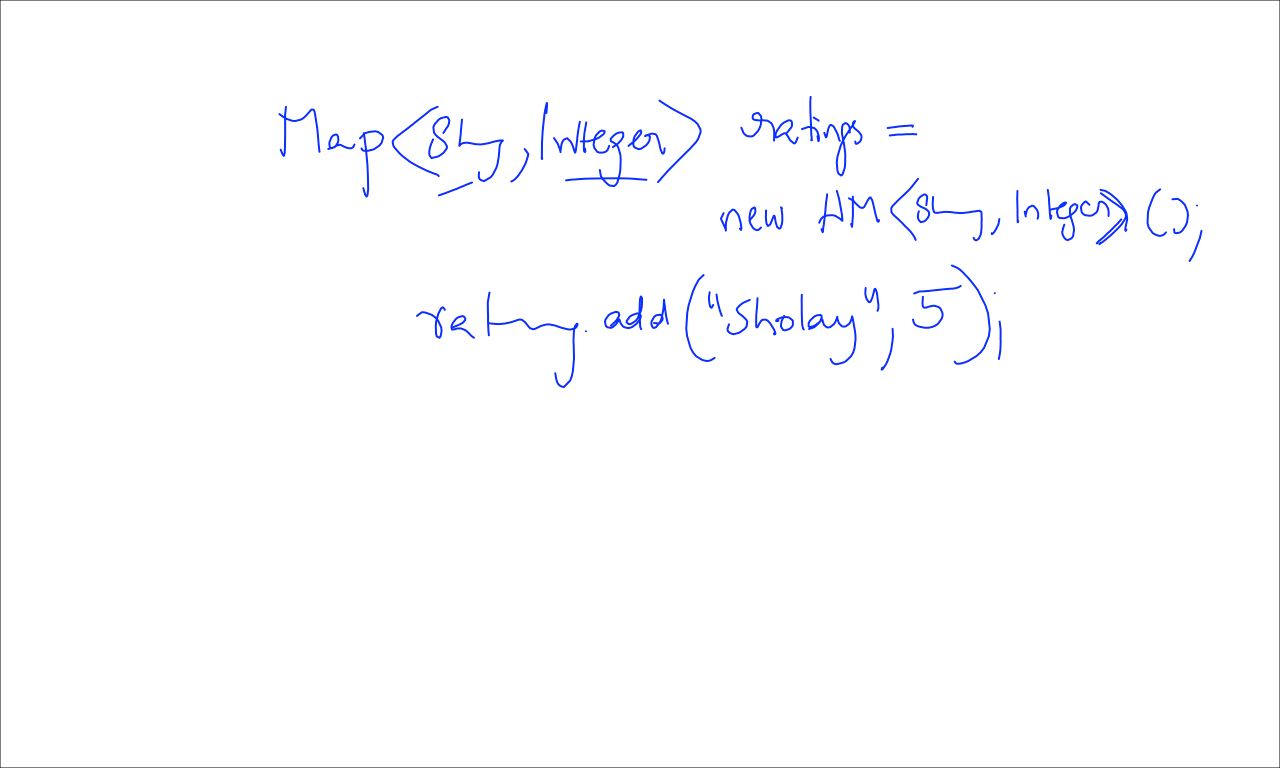 Map<String, Integer> ratings =
new HM<String, Integer>();
rating.add("Sholay", 5);